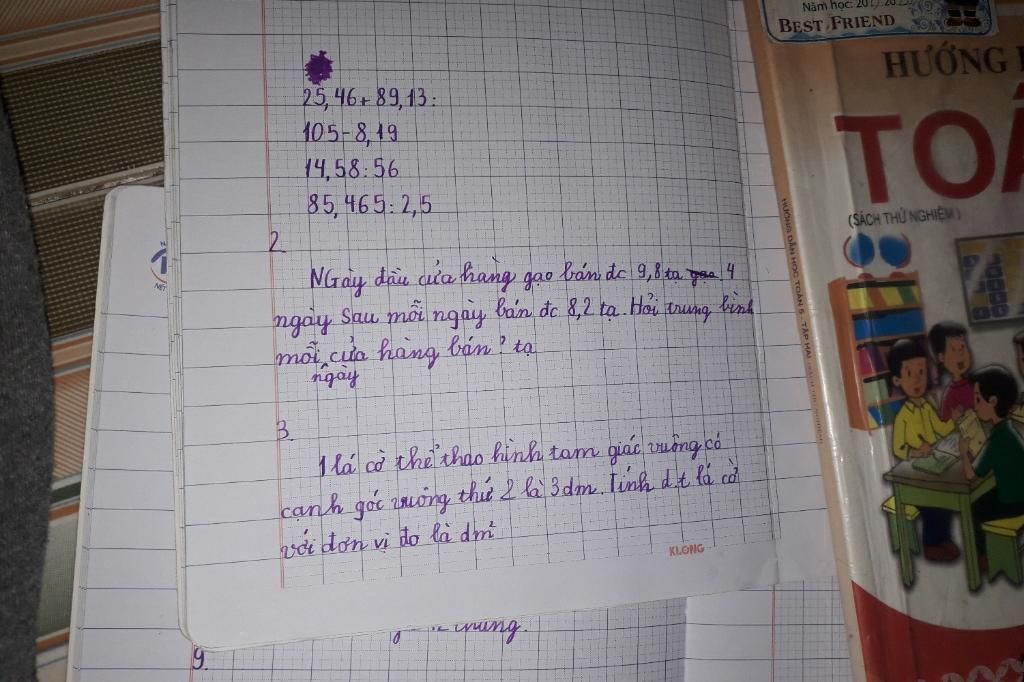 25,46 + 89,13 :
105 - 8,19
14,58 : 56
85,465 : 2,5
2.
NGày đầu cửa hàng gạo bán đc 9,8 tạ 4
ngày sau mỗi ngày bán đc 8,2 tạ. Hỏi trung bình
mỗi cửa hàng bán ? tạ
ngày
3.
1 lá cờ thể thao hình tam giác vuông có
cạnh góc vuông thứ 2 là 3 dm. Tính d.t lá cờ
với đơn vị đo là dm²
KLONG
9.
Năm học: 20
BEST FRIEND
HƯỚNG
TOÁ
(SÁCH THỬ NGHIỆM)
HƯỚNG DẪN HỌC TOÁN 5 - TẬP HAI